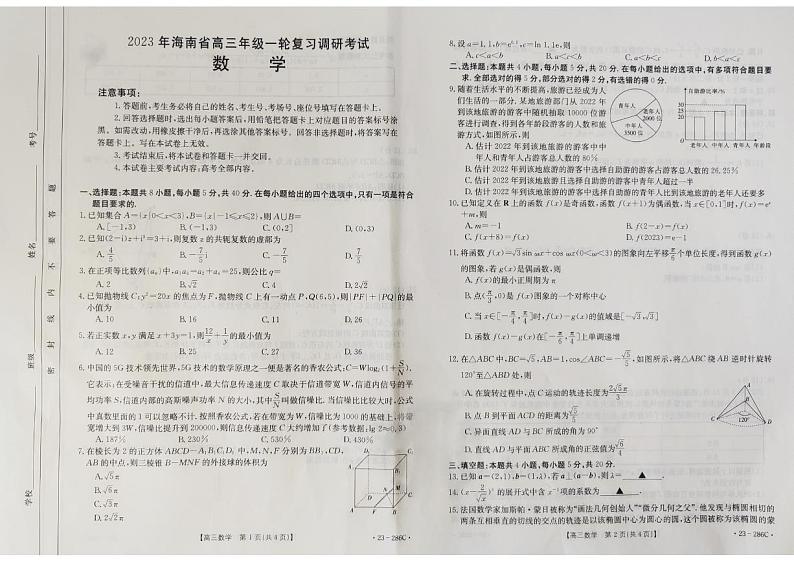 2023 年海南省高三年级一轮复习调研考试
数 学
注意事项：
1. 答题前,考生务必将自己的姓名、考生号、考场号、座位号填写在答题卡上。
2. 回答选择题时,选出每小题答案后,用铅笔把答题卡上对应题目的答案标号涂
黑。如需改动,用橡皮擦干净后,再选涂其他答案标号。回答非选择题时,将答案写在
答题卡上。写在本试卷上无效。
3. 考试结束后,将本试卷和答题卡一并交回。
4. 本试卷主要考试内容:高考全部内容。
一、选择题:本题共 8 小题,每小题 5 分,共 40 分. 在每小题给出的四个选项中,只有一项是符合
题目要求的.
1. 已知集合 A={x|0<x<3},B={x|-1≤x≤2},则 A∪B=
A. [-1,3) B. (-1,2) C. (0,2] D. (0,3)
2. 已知(2-i)z+i³=3+i,则复数 z 的共轭复数的虚部为
A. 4/5 B. -7/5 i C. -7/5 D. 7/5
3. 在正项等比数列{aₙ}中,
=25,则公比 q=
A. 2 B. √2 C. 4 D. 2√2
4. 已知抛物线 C:y²=20x 的焦点为 F,抛物线 C 上有一动点 P,Q(6,5),则|PF|+|PQ|的最
小值为
A. 10 B. 16 C. 11 D. 26
5. 若正实数 x,y 满足 x+3y=1,则 12/x+1/y 的最小值为
A. 12 B. 25 C. 27 D. 36
6. 中国的 5G 技术领先世界,5G 技术的数学原理之一便是著名的香农公式:C=Wlog₂(1+S/N).
它表示:在受噪音干扰的信道中,最大信息传递速度 C 取决于信道带宽 W,信道内信号的平
均功率 S,信道内部的高斯噪声功率 N 的大小,其中 S/N 叫做信噪比. 当信噪比比较大时,公式
中真数里面的 1 可以忽略不计. 按照香农公式,若在带宽为 W,信噪比为 1000 的基础上,将带
宽增大到 3W,信噪比提升到 200000,则信息传递速度 C 大约增加了(参考数据:lg 2≈0.3)
A. 187% B. 230% C. 530% D. 430%
7. 在棱长为 2 的正方体 ABCD-A₁B₁C₁D₁ 中,M,N,F 分别为 BB₁,CD,
AB 的中点,则三棱锥 B-MNF 的外接球的体积为
A. √5π
B. √6π
C. √3π
D. 2√2π
【高三数学 第 1 页(共 4 页)】
·23-286C·
8. 设 a=1.1,
,c=ln 1.1e,则
A. c<a<b B. b<a<c C. a<c<b D. a<b<c
二、选择题:本题共 4 小题,每小题 5 分,共 20 分. 在每小题给出的选项中,有多项符合题目要
求. 全部选对的得 5 分,部分选对的得 2 分,有选错的得 0 分.
9. 随着生活水平的不断提高,旅游已经成为人
们生活的一部分. 某地旅游部门从 2022 年
到该地旅游的游客中随机抽取 10000 位游
客进行调查,得到各年龄段游客的人数和旅
游方式,如图所示,则
A. 估计 2022 年到该地旅游的游客中中
年人和青年人占游客总人数的 80%
B. 估计 2022 年到该地旅游的游客中选择自助游的游客占游客总人数的 26.25%
C. 估计 2022 年到该地旅游且选择自助游的游客中青年人超过一半
D. 估计 2022 年到该地旅游的游客中选择自助游的青年人比到该地旅游的老年人还要多
10. 已知定义在 R 上的函数 f(x)是奇函数,函数 f(x+1)为偶函数,当 x∈[0,1]时,f(x)=eˣ
+m,则
A. m=-1 B. f(2-x)=f(x)
C. f(x+8)=f(x) D. f(2023)=e-1
11. 将函数 f(x)=√3sin ωx+cos ωx(0<ω<3)的图象向左平移
个单位长度,得到函数 g(x)
的图象,若 g(x)是偶函数,则
A. f(x)的最小正周期为 π
B. 点(
,0)是 f(x)图象的一个对称中心
C. 当 x∈[-π/4,π/4]时,f(x)-g(x)的值域是[-√3,√3]
D. 函数 f(x)-g(x)在[-π/6,π/6]上单调递增
12. 在△ABC 中,BC=√5,AB=1,cos∠ABC=-√5/5,如图所示,将△ABC 绕 AB 逆时针旋转
120°至△ABD 处,则
A. 在旋转过程中,点 C 运动的轨迹长度为
B. 点 B 到平面 ACD 的距离为
C. 异面直线 AD 与 BC 所成的角为 90°
D. 直线 AD 与平面 ABC 所成角的正弦值为 √6/4
三、填空题:本题共 4 小题,每小题 5 分,共 20 分.
13. 已知向量 a=(2,1),b=(1,λ),若 a⊥(a-b),则 λ= ▲ .
14.
的展开式中含 x⁻¹ 项的系数为 ▲ .
15. 法国数学家加斯帕·蒙日被称为“画法几何创始人”“微分几何之父”. 他发现与椭圆相切的
两条互相垂直的切线的交点的轨迹是以该椭圆中心为圆心的圆,这个圆被称为该椭圆的蒙
【高三数学 第 2 页(共 4 页)】
·23-286C·
青年人
老年人
2000 位
中年人
3500 位
自助游比率/%
30
25
20
老年人 中年人 青年人 年龄段
120°
学校
班级
姓名
考号
密 封 线 内 不 要 答 题